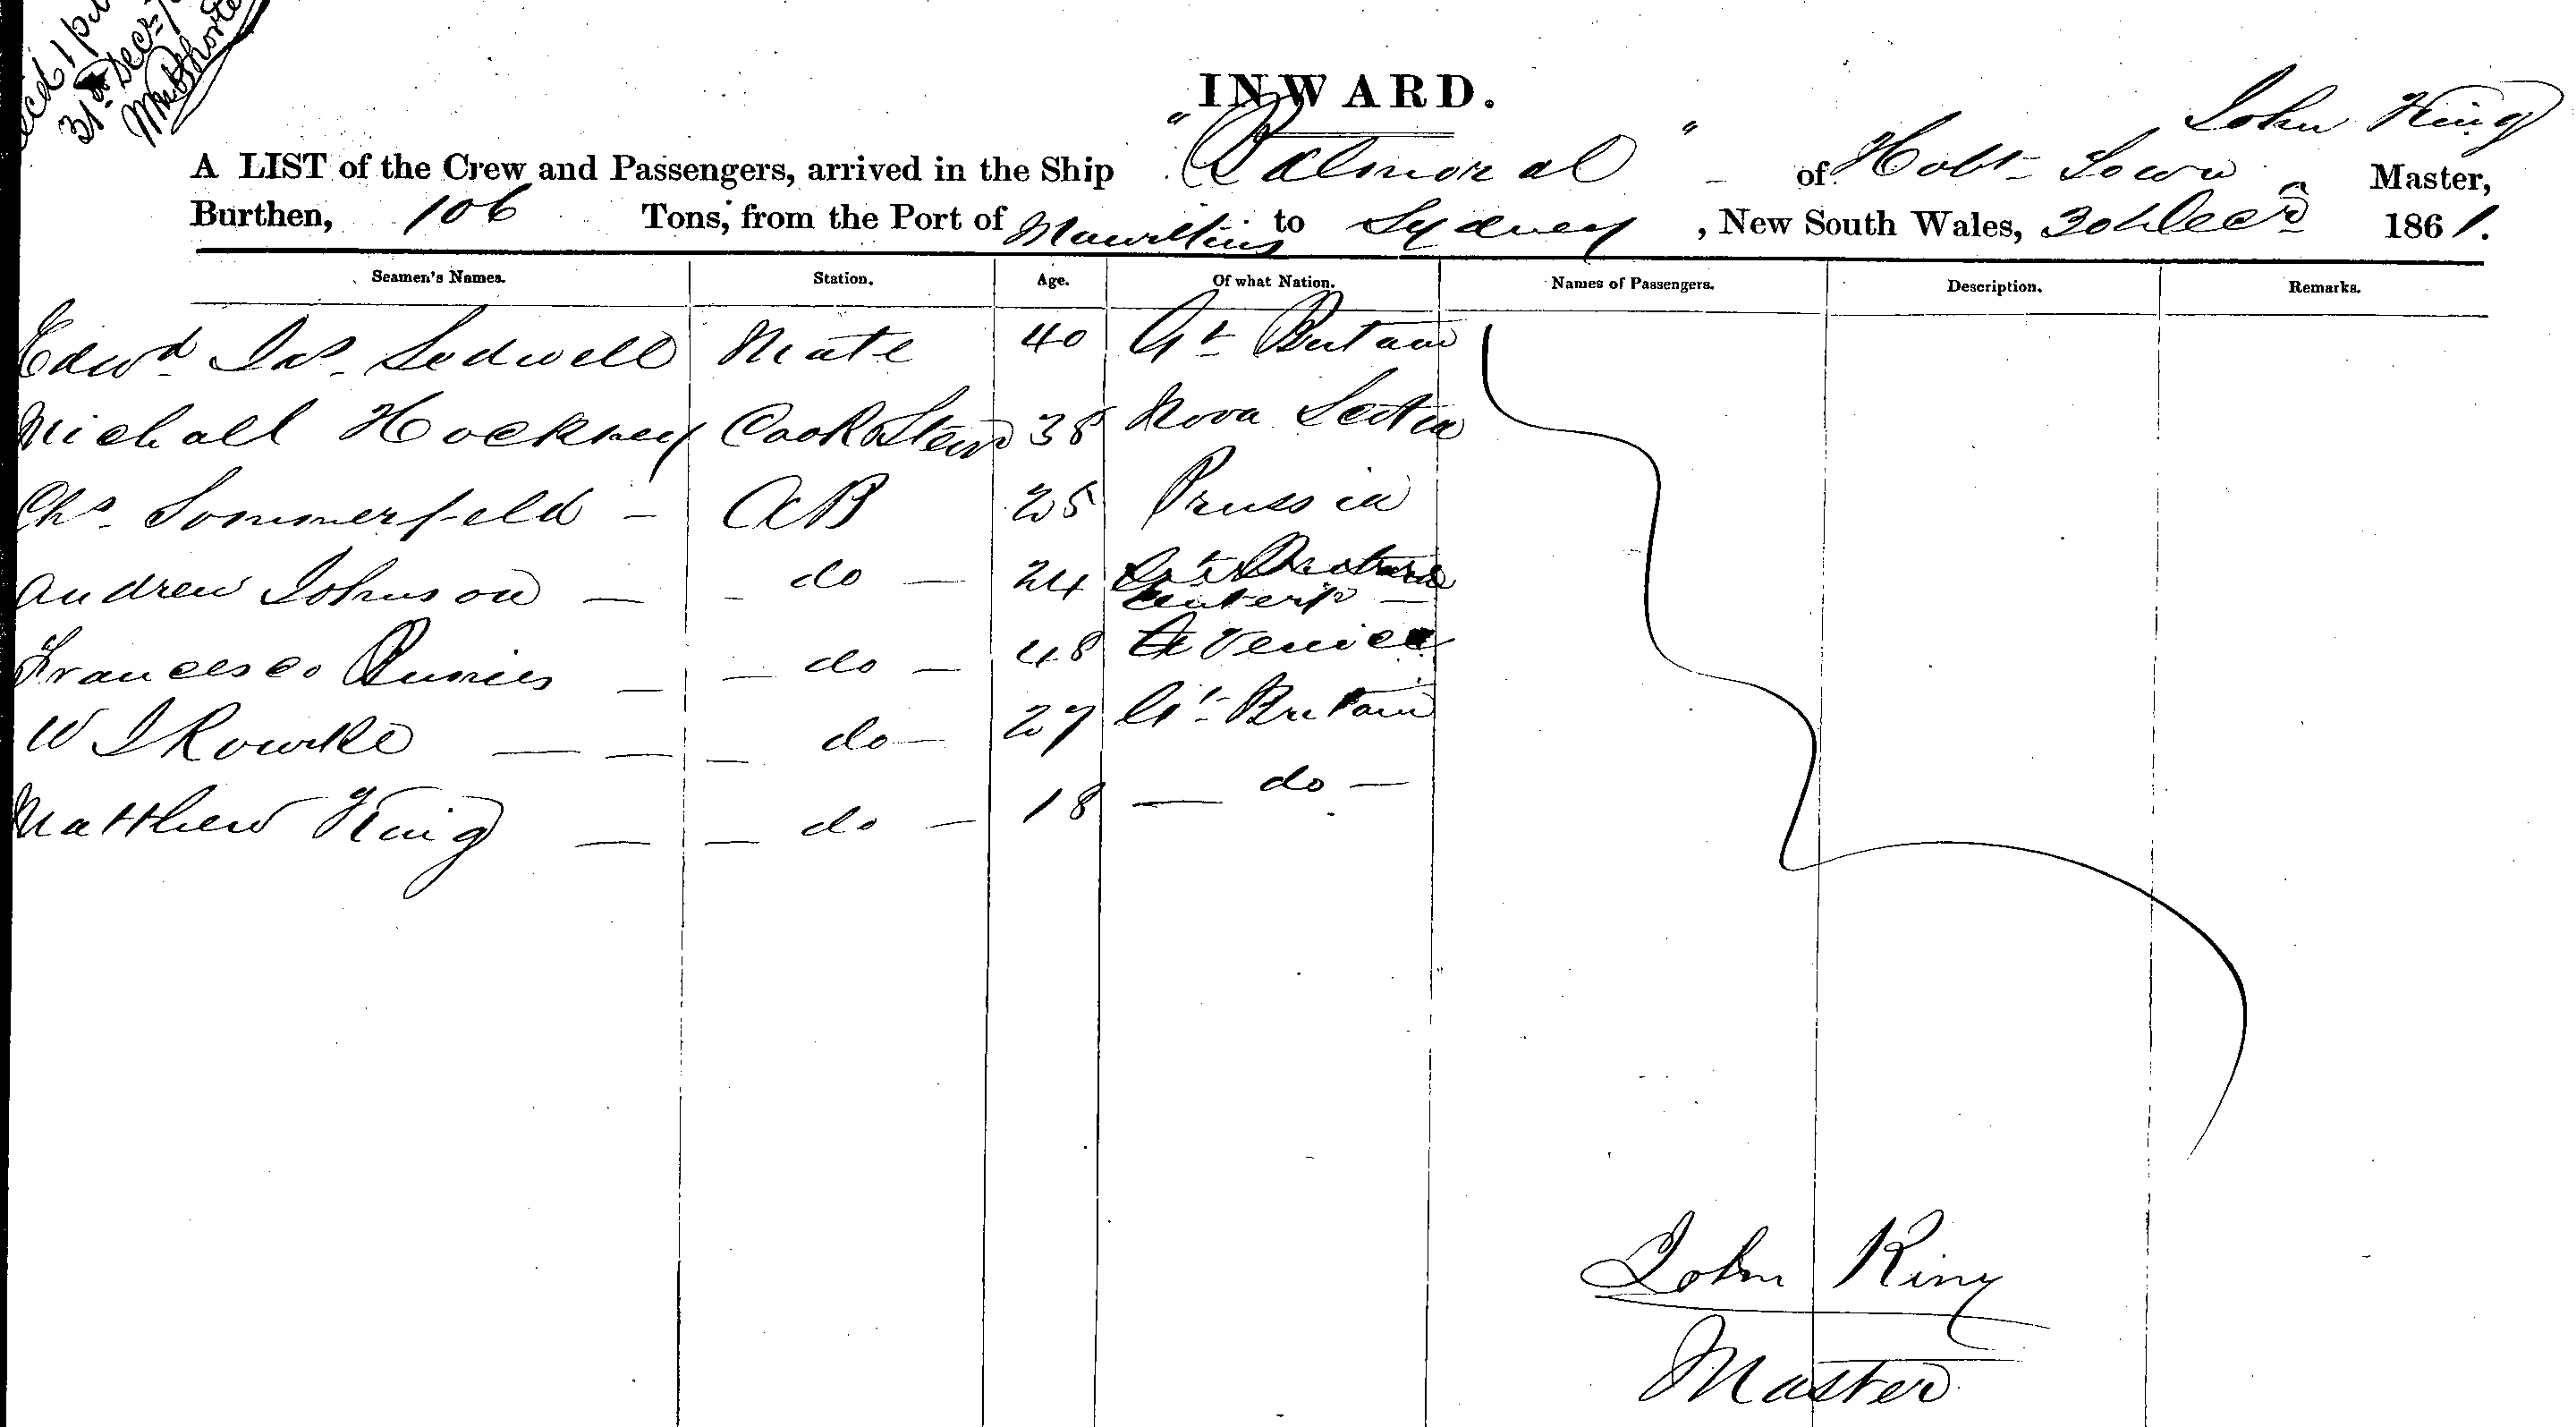 31st Decr
INWARD.
John King
A LIST of the Crew and Passengers, arrived in the Ship "Balmoral" of Hobt Town Master,
Burthen, 106 Tons, from the Port of Mauritius to Sydney, New South Wales, 30 Decr 1861.
Seamen's Names. Station. Age. Of what Nation. Names of Passengers. Description. Remarks.
Edwd Jas. Sedwell Mate 40 Gt Britain
Michall Hockney Cook & Stewd 38 Nova Scotia
Chs. Sommerfeld - AB 25 Prussia
Andrew Johnson — - do — 24
Antwerp —
Francesco — — do — 48 Venice
W J Rourke — — — do — 27 Gt Britain
Matthew King — — do — 18 — do —
John King
Master